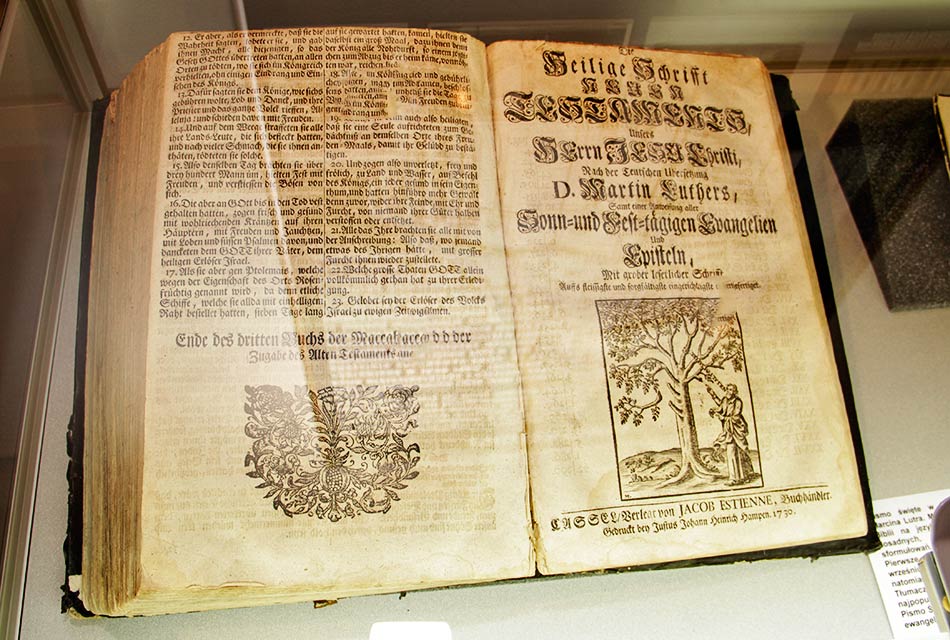 12. Er aber, als er vermerckte, daß sie die
Wahrheit sagten, lobete er sie, und gab
ihnen Macht, alle diejenigen, so das
Gesetz GOttes übertretten hatten, an allen
Orten zu tödten, wo sie sich im Königreich
verhielten, ohn einigen Eindrang und Ein-
sehen des Königs.
13. Dafür sagten sie dem Könige, wie sichs
gebühren wolte, Lob und Danck, und ihre
Priester und das gantze Volck rieffen, Al-
leluja! und schieden davon mit Freuden.
14. Und auf dem Wege straffeten sie alle
ihre Lands-Leute, die sich befleckt hatten,
und nach vieler Schmach, die sie ihnen an-
thäten, tödteten sie solche.
15. Also denselben Tag brachten sie über
drey hundert Mann um, hielten Fest mit
Freuden, und verstiessen die Bösen von
sich.
16. Die aber an GOtt bis in den Tod vest
gehalten hatten, zogen frisch und gesund
mit wohlriechenden Kräntzen auf ihren
Häuptern, mit Freuden und Jauchtzen,
mit Loben und süssen Psalmen davon, und
danckten dem GOTT ihrer Väter, dem
heiligen Erlöser Israel.
17. Als sie aber gen Ptolemais, welche
wegen der Eigenschafft des Orts Rosen-
früchtig genannt wird, da denn etliche
Schiffe, welche sie allda mit einhelligem
Raht bestellet hatten, sieben Tage lang
auf sie gewartet hatten, kamen, hielten sie
daselbst ein groß Maal, dazu ihnen denn
der König alle Nohtdurfft, so einem jeg-
chen zum
18. Also,
19.
denn auch also heiligten,
daß sie eine Seule aufrichteten zum Ge-
dächtniß an demselben Orte ihres Freu-
den-Maals, damit ihr Gelübd zu bestä-
tigen.
20. Und zogen also unverletzt, frey und
frölich, zu Land und Wasser, auf Befehl
des Königs, ein jeder gesund in sein Eigen-
thum, und hatten hinführo mehr Gewalt
denn zuvor, wider ihre Feinde, mit Ehr und
Furcht, von niemand ihrer Güter halben
verstossen oder entsetzet.
21. Alle das Ihre brachten sie alle mit von
der Anschreibung: Also daß, wo jemand
etwas des Ihrigen hatte, mit grosser
Furcht ihnen wieder zustellete.
22. Welche grosse Thaten GOTT allein
vollkömmlich gethan hat zu ihrer Erledi-
gung.
23. Gelobet sey der Erlöser des Volcks
Israel zu ewigen Zeiten! Amen.
Ende des dritten Buchs der Maccabaeer
Zugabe des Alten Testaments
Die
Heilige Schrifft
NEUEN
TESTAMENTS,
Unsers
HErrn JESU Christi,
Nach der Teutschen Ubersetzung
D. Martin Luthers,
Samt einer Anweisung aller
Sonn-und Fest-tägigen Evangelien
Und
Episteln,
Mit grober leserlicher Schrifft
Auffs fleissigste und sorgfältigste eingerichtet
CASSEL, Verlegt von JACOB ESTIENNE, Buchhändler.
Gedruckt bey Justus Johann Heinrich Hampen. 1730.
ismo święte w
arcina Lutra.
Biblii na
osadnych,
sformułowań
Pierwsze
wrześni
natomia
Tłumacz
najpopu
Pismo S
ewangel